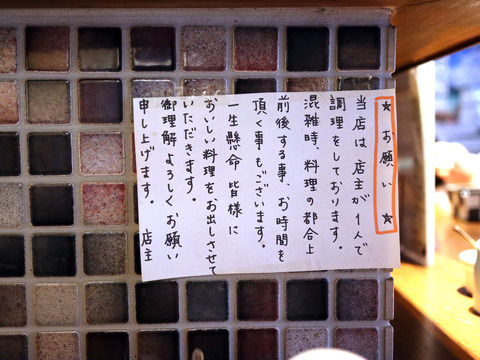 ★お願い★
当店は、店主が1人で
調理をしております。
混雑時、料理の都合上
前後する事、お時間を
頂く事もございます。
一生懸命 皆様に
おいしい料理をお出しさせて
いただきます。
御理解よろしくお願い
申し上げます。 店主